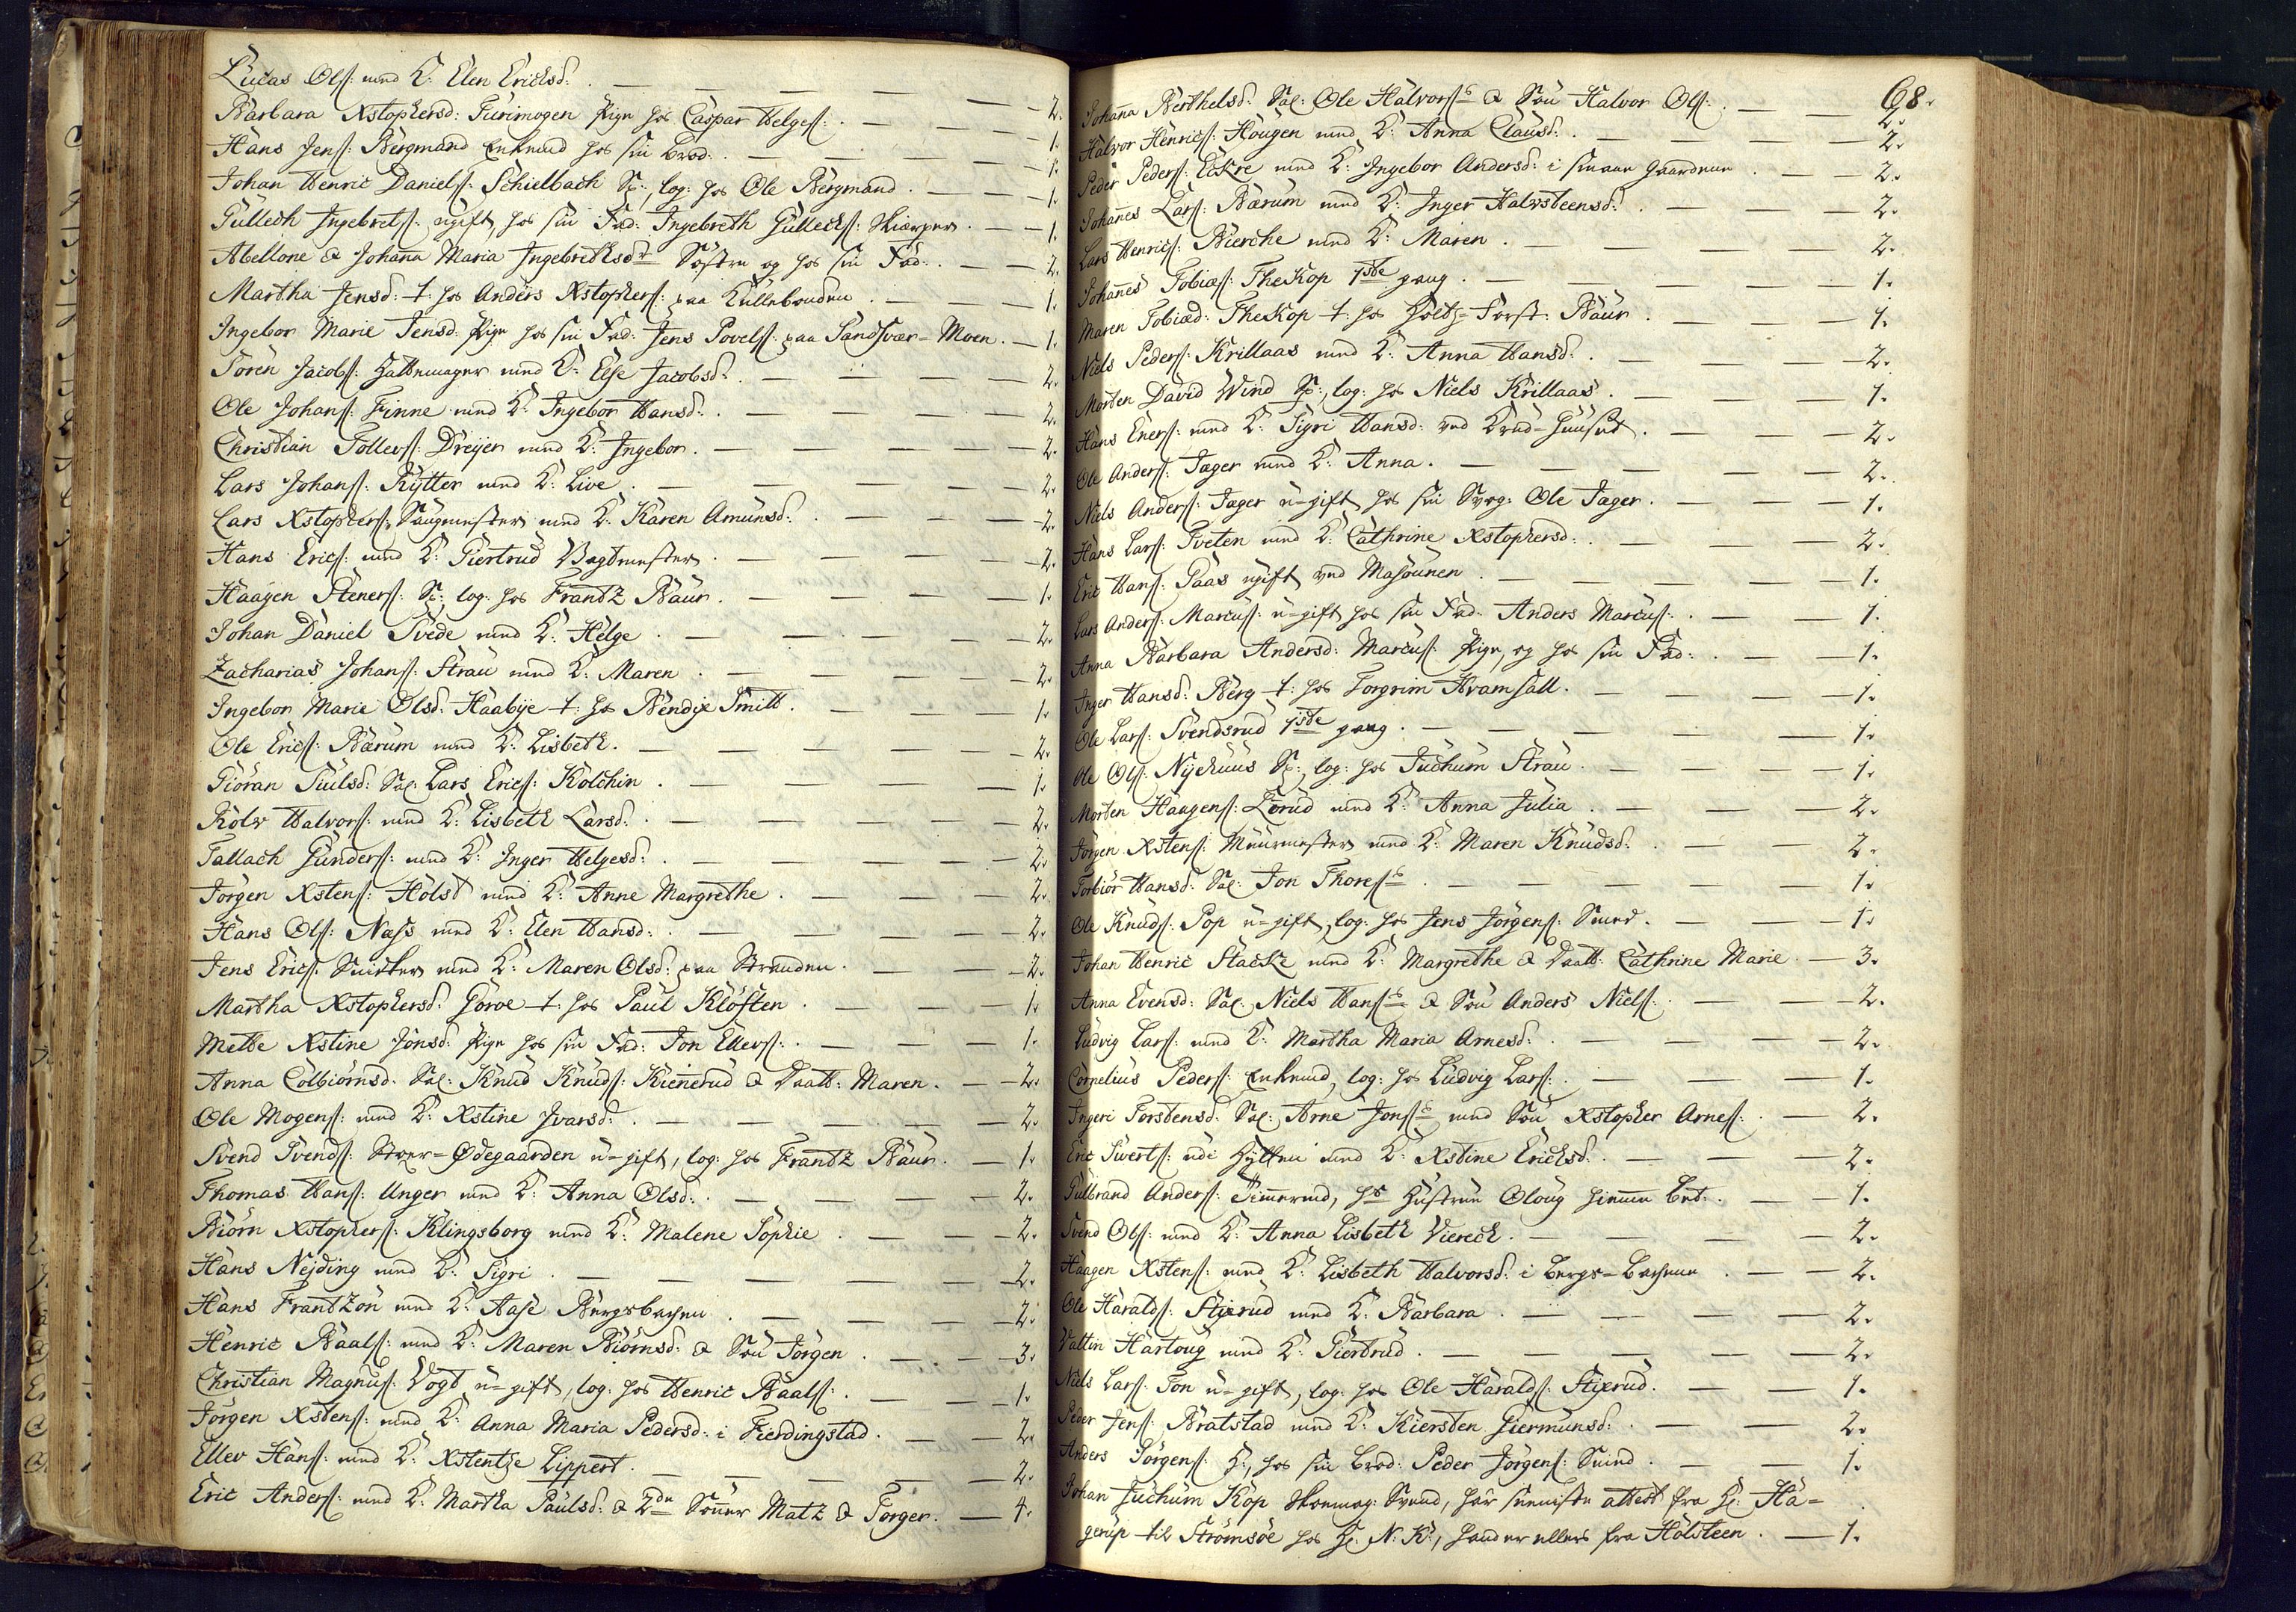 Lucas Ols: med K: Elen Ericksd: . — — — — — 2.
Barbara Xstophersd: Furimogen Pige hos Caspar Helges: . — — — 1.
Hans Jens: Bergmand Enkemd hos sin Brod: . — — — — 1.
Johan Henric Daniels: Schielbach S:, log: hos Ole Bergmand . — — 1.
Gullech Ingebrets: ugift hos sin Fad: Ingebreth Gullecks: Skierper . — — 1.
Abellone & Johana Maria Ingebrethsdr Søstre og hos sin Fad: . — — 2.
Martha Jensd: t: hos Anders Xstophers: paa Kullebonden . — — — 1.
Ingebor Marie Jensd: Pige hos sin Fad: Jens Povels: paa Sandsvær=Moen . — 1.
Søren Jacobs: Hattemager med K: Else Jacobsd: . — — — — 2.
Ole Johans: Finne med K: Ingebor Hansd: . — — — — 2.
Christian Tollevs: Dreyer med K: Ingebor . — — — — 2.
Lars Johans: Rytter med K: Live . — — — — — 2.
Lars Xstophers: Saugmester med K: Karen Amunsd: . — — — 2.
Hans Erics: med K: Giertrud Vagtmester . — — — — 2.
Haagen Steners: S:, log: hos Frantz Baur . — — — — 1.
Johan Daniel Svede med K: Helge . — — — — 2.
Zacharias Johans: Strau med K: Maren . — — — — 2.
Ingebor Marie Olsd: Haabye t: hos Bendix Smitt . — — — 1.
Ole Erics: Bærum med K: Lisbeth . — — — — — 2.
Giøran Siulsd: Sal: Lars Erics: Kolchin . — — — — 1.
Rolv Halvors: med K: Lisbeth Larsd: . — — — — 2.
Tallach Gunders: med K: Inger Helgesd: . — — — — 2.
Jørgen Xstens: Holst med K: Anne Margrethe . — — — 2.
Hans Ols: Næss med K: Elen Hansd: . — — — — 2.
Jens Erics: Snicker med K: Maren Olsd: paa Stranden . — — — 2.
Martha Xstophersd: Gorve t: hos Paul Kløften . — — — 1.
Mette Xstine Jonsd: Pige hos sin Fad: Jon Ellevs: . — — — 1.
Anna Colbiørnsd: Sal: Knud Knuds: Kiennerud & Daatt: Maren . — — 2.
Ole Mogens: med K: Xstine Ivarsd: . — — — — — 2.
Svend Svends: Stoer=Ødegaarden u=gift, log: hos Frantz Baur . — 1.
Thomas Hans: Unger med K: Anna Olsd: . — — — — 2.
Biørn Xstophers: Klingsborg med K: Malene Sophie . — — — 2.
Hans Nejding med K: Sigri . — — — — — 2.
Hans Frantzon med K: Aase Bergsbachen . — — — — 2.
Henric Baals: med K: Maren Biørnsd: & Søn Jørgen . — — — 3.
Christian Magnus: Vogt u=gift, log: hos Henric Baals: . — — — 1.
Jørgen Xstens: med K: Anna Maria Pedersd: i Fierdingstad . — — 2.
Ellev Hans: med K: Xstentze Lippert . — — — — 2.
Eric Anders: med K: Martha Paulsd: & 2de Sønner Matz & Torger . — 4.
68.
Johana Berthelsd: Sal: Ole Halvorss & Søn Halvor Ols: . — — 2.
Halvor Henrics: Hougen med K: Anna Clausd: . — — — 2.
Peder Peders: Eckre med K: Ingebor Andersd: i Smaae Gaardene . — 2.
Johannes Lars: Bærum med K: Inger Halvsteensd: . — — — 2.
Lars Henrics: Bierche med K: Maren . — — — — 2.
Johannes Tobias: Thekop 1ste gang . — — — — 1.
Maren Tobiæd: Thekop t: hos Holtz-Forst: Baur . — — — 1.
Niels Peders: Krillaas med K: Anna Hansd: . — — — 2.
Morten David Wind S:, log: hos Niels Krillaas . — — — 1.
Hans Eners: med K: Sigri Hansd: ved Krud-Huuset . — — — 2.
Ole Anders: Jæger med K: Anna . — — — — 2.
Niels Anders: Jæger u=gift hos sin Svog: Ole Jæger . — — — 1.
Hans Lars: Tveten med K: Cathrine Xstophersd: . — — — 2.
Eric Hans: Paas ugift ved Masovnen . — — — — 1.
Lars Anders: Marcus: u=gift hos sin Fad: Anders Marcus: . — — 1.
Anna Barbara Andersd: Marcus: Pige, og hos sin Fad: . — — 1.
Inger Hansd: Berg t: hos Torgrim Hramsall . — — — 1.
Ole Lars: Svendsrud 1ste gang . — — — — — 1.
Ole Ols: Nyehuus S:, log: hos Juchum Strau . — — — 1.
Morten Haagens: Lerud med K: Anna Julia . — — — 2.
Jørgen Xstens: Muurmester med K: Maren Knudsd: . — — 2.
Torbiør Hansd: Sal: Jon Thoress . — — — — 1.
Ole Knuds: Pop u=gift, log: hos Jens Jørgens: Smed . — — 1.
Johan Henric Stacke med K: Margrethe & Daatt: Cathrine Marie . — 3.
Anna Evensd: Sal: Niels Hanss & Søn Anders Niels: . — — 2.
Ludvig Lars: med K: Martha Maria Arnesd: . — — — 2.
Cornelius Peders: Enkemd, log: hos Ludvig Lars: . — — — 1.
Ingeri Torstensd: Sal: Arne Jonss med Søn Xstopher Arnes: . — 2.
Eric Siverts: udi Hytten med K: Xstine Ericksd: . — — — 2.
Gulbrand Anders: Timmermd, hs Hustrue Oloug hiemme Bet: . — — 1.
Svend Ols: med K: Anna Lisbeth Viereck . — — — 2.
Haagen Xstens: med K: Lisbeth Halvorsd: i Bergs=Bachene . — — 2.
Ole Haralds: Stixrud med K: Barbara . — — — — 2.
Valtin Hartoug med K: Giertrud . — — — — — 2.
Niels Lars: Ton u=gift, log: hos Ole Haralds: Stixrud . — — 1.
Peder Jens: Bratstad med K: Kiersten Giermunsd: . — — — 2.
Anders Jørgens: H:, hos sin Brod: Peder Jørgens: Smed . — — 1.
Johan Juchum Kop Skoemag: Svend, har seeniste attest fra H: Ha=
gerup til Strømsøe hos H: N: K:, hand er ellers fra Holsteen . — 1.